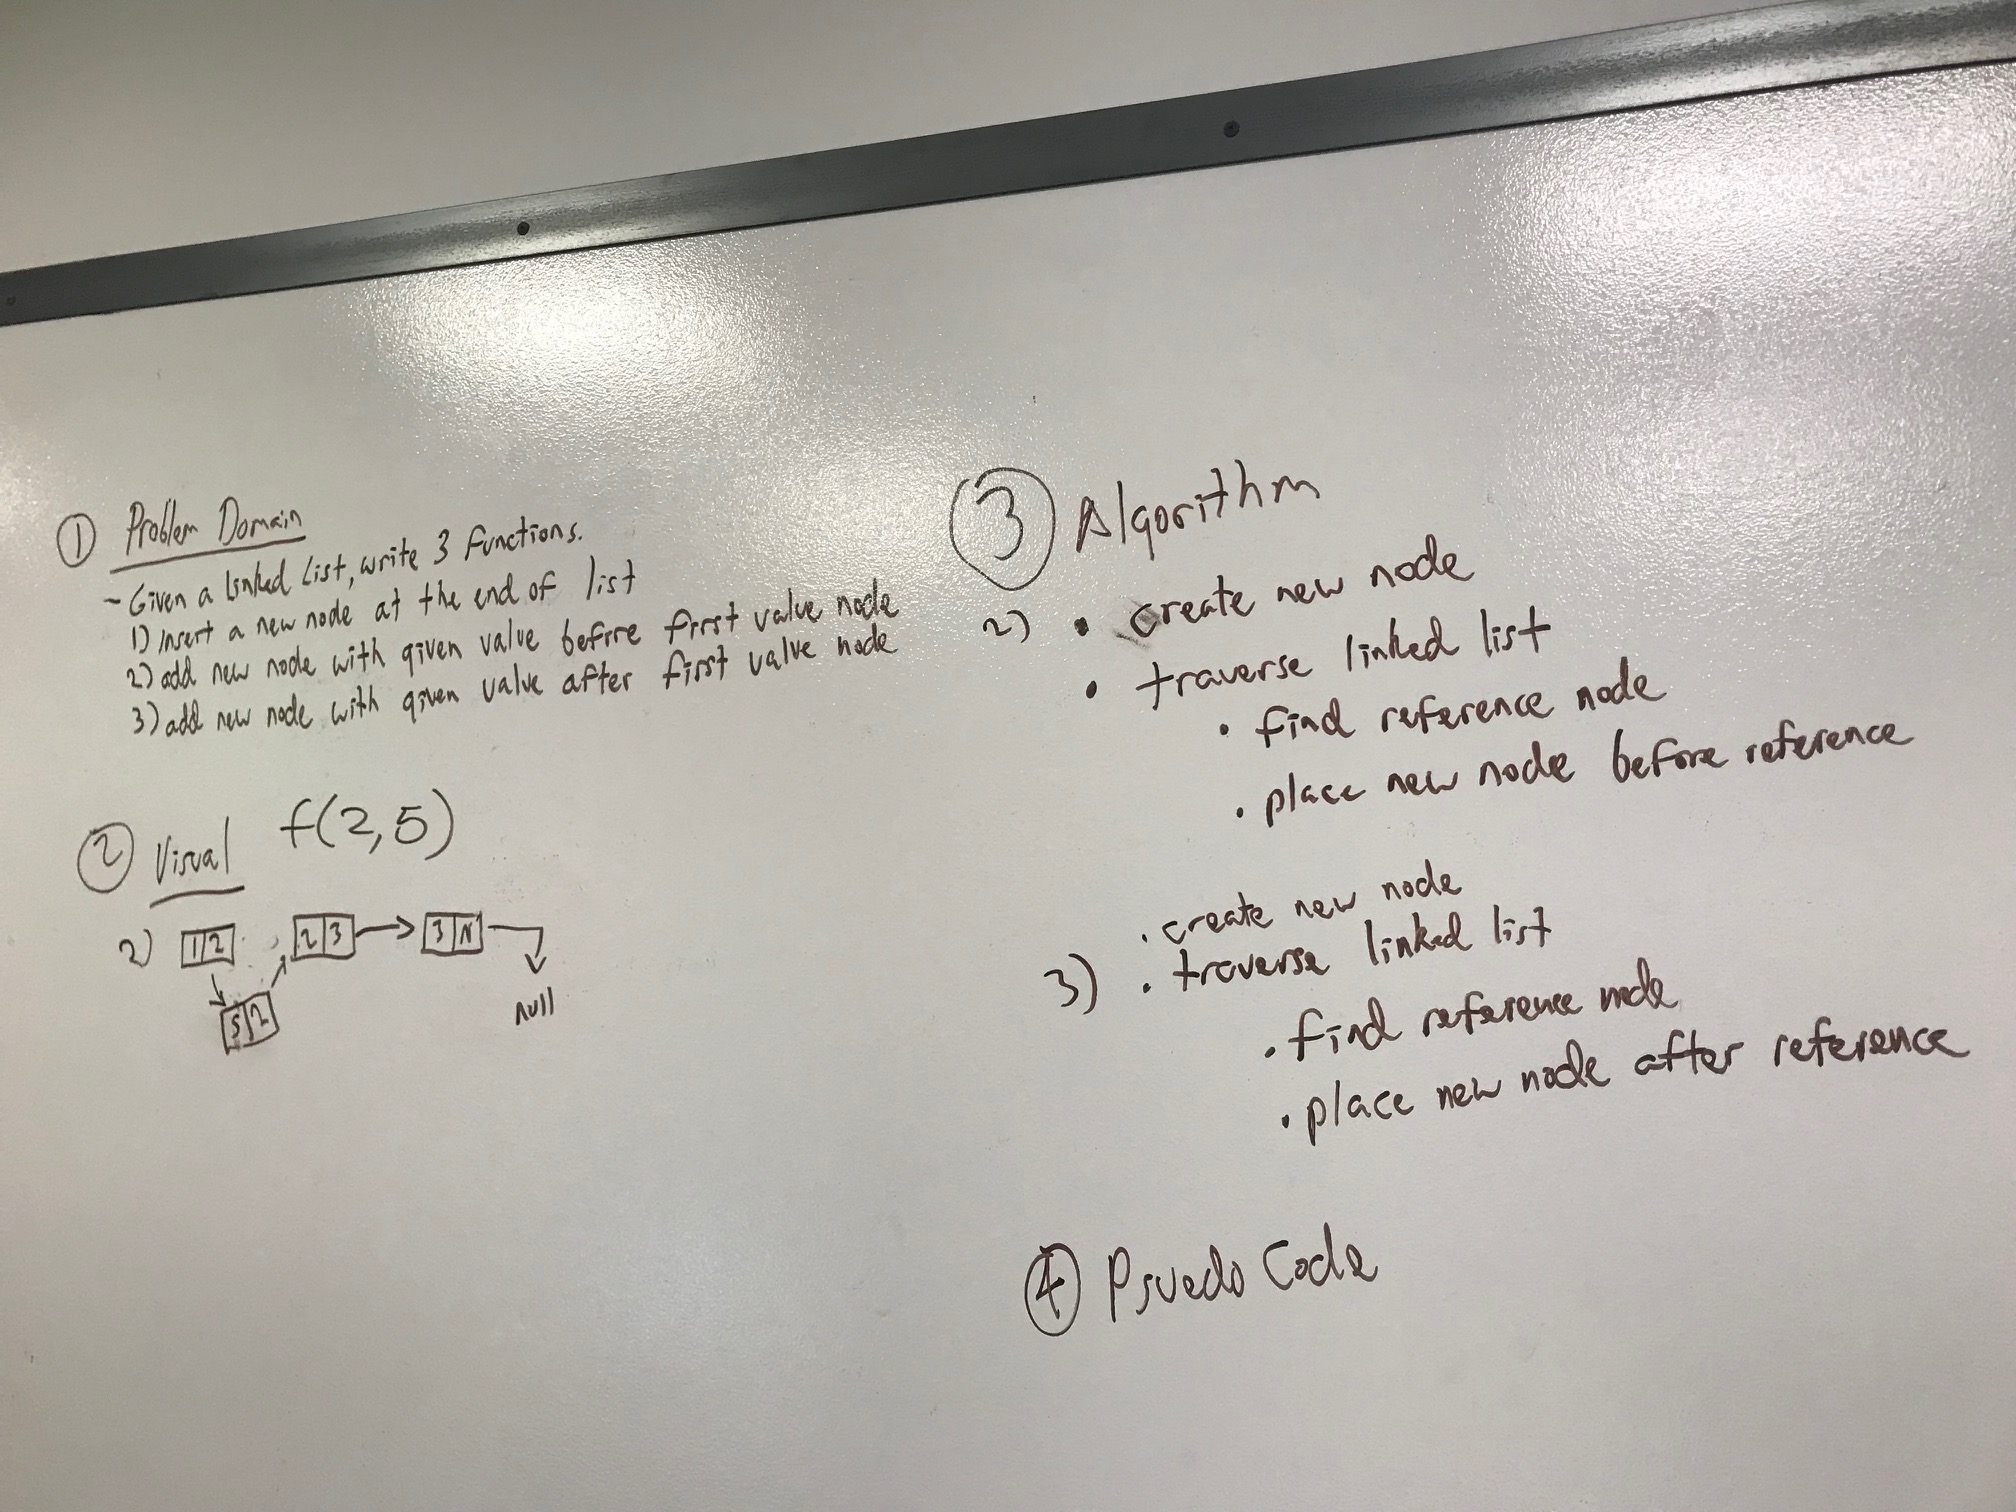 ① Problem Domain
- Given a linked list, write 3 functions.
1) insert a new node at the end of list
2) add new node with given value before first value node
3) add new node with given value after first value node
② Visual f(2,5)
2) 1 2 2 3 3 N
5 2
null
③ Algorithm
2) • create new node
• traverse linked list
• find reference node
• place new node before reference
• create new node
3) • traverse linked list
• find reference node
• place new node after reference
④ Psuedo Code